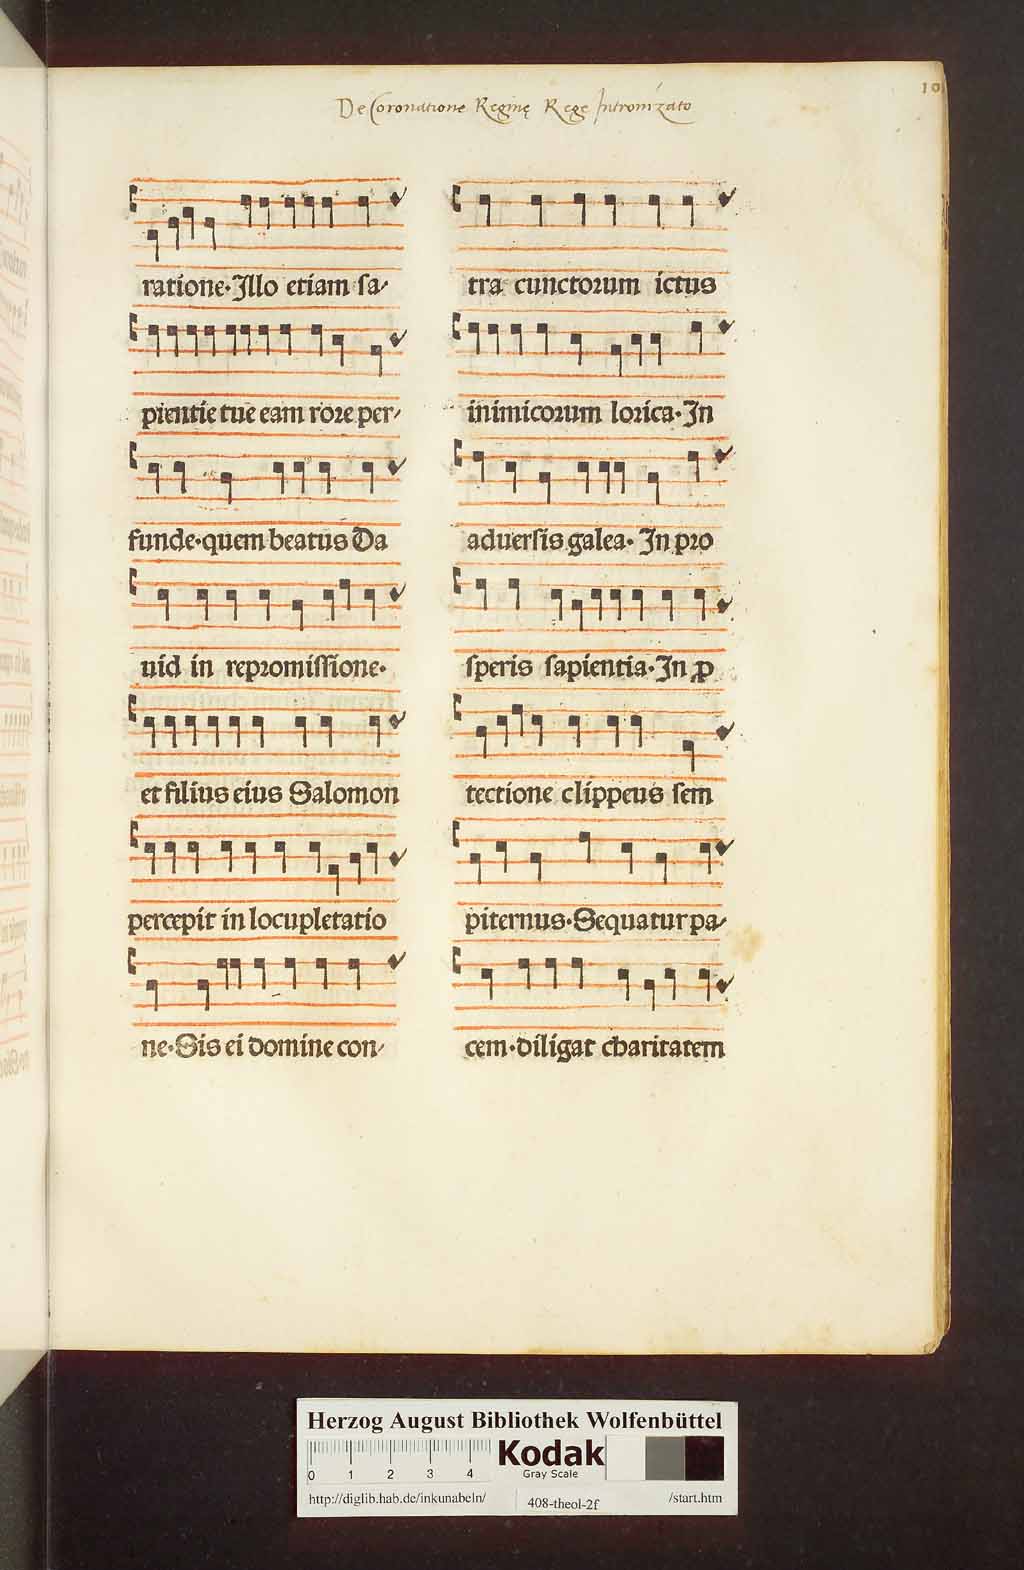 De Coronatione Reginę Rege Intronizato
10
ratione·Illo etiam sa-
pientie tue eam rore per-
funde·quem beatus Da
uid in repromissione·
et filius eius Salomon
percepit in locupletatio
ne·Sis ei domine con-
tra cunctorum ictus
inimicorum lorica·In
aduersis galea·In pro
speris sapientia·In ꝓ
tectione clippeus sem
piternus·Sequatur pa-
cem·diligat charitatem
Herzog August Bibliothek Wolfenbüttel
Kodak
Gray Scale
0 1 2 3 4
http://diglib.hab.de/inkunabeln/ 408-theol-2f /start.htm